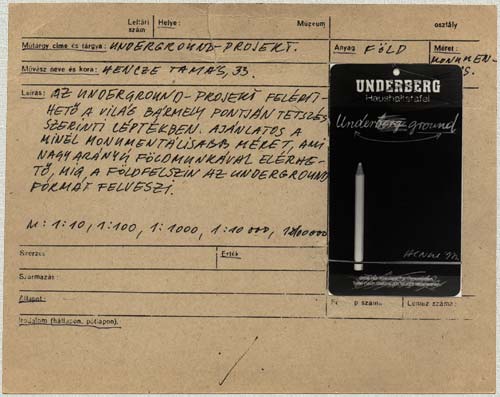 Leltári szám
Helye:
Múzeum
osztály
Műtárgy címe és tárgya: UNDERGROUND-PROJEKT.
Anyag: FÖLD
Méret: MONUMEN-
Művész neve és kora: HENCZE TAMÁS, 33.
Leírás: AZ UNDERGROUND-PROJEKT FELÉPÍT-
HETŐ A VILÁG BÁRMELY PONTJÁN TETSZÉS
SZERINTI LÉPTÉKBEN. AJÁNLATOS A
MINÉL MONUMENTÁLISABB MÉRET, AMI
NAGYARÁNYÚ FÖLDMUNKÁVAL ELÉRHE-
TŐ, MIG, A FÖLDFELSZIN AZ UNDERGROUND
FORMÁT FELVESZI.
M: 1:10, 1:100, 1:1000, 1:10000,
UNDERBERG
Haushaltstafel
Underberg ground
Szerzés
Érték
Származás:
Állapot:
szám:
Leltár száma:
Irodalom (hátlapon, pótlapon).